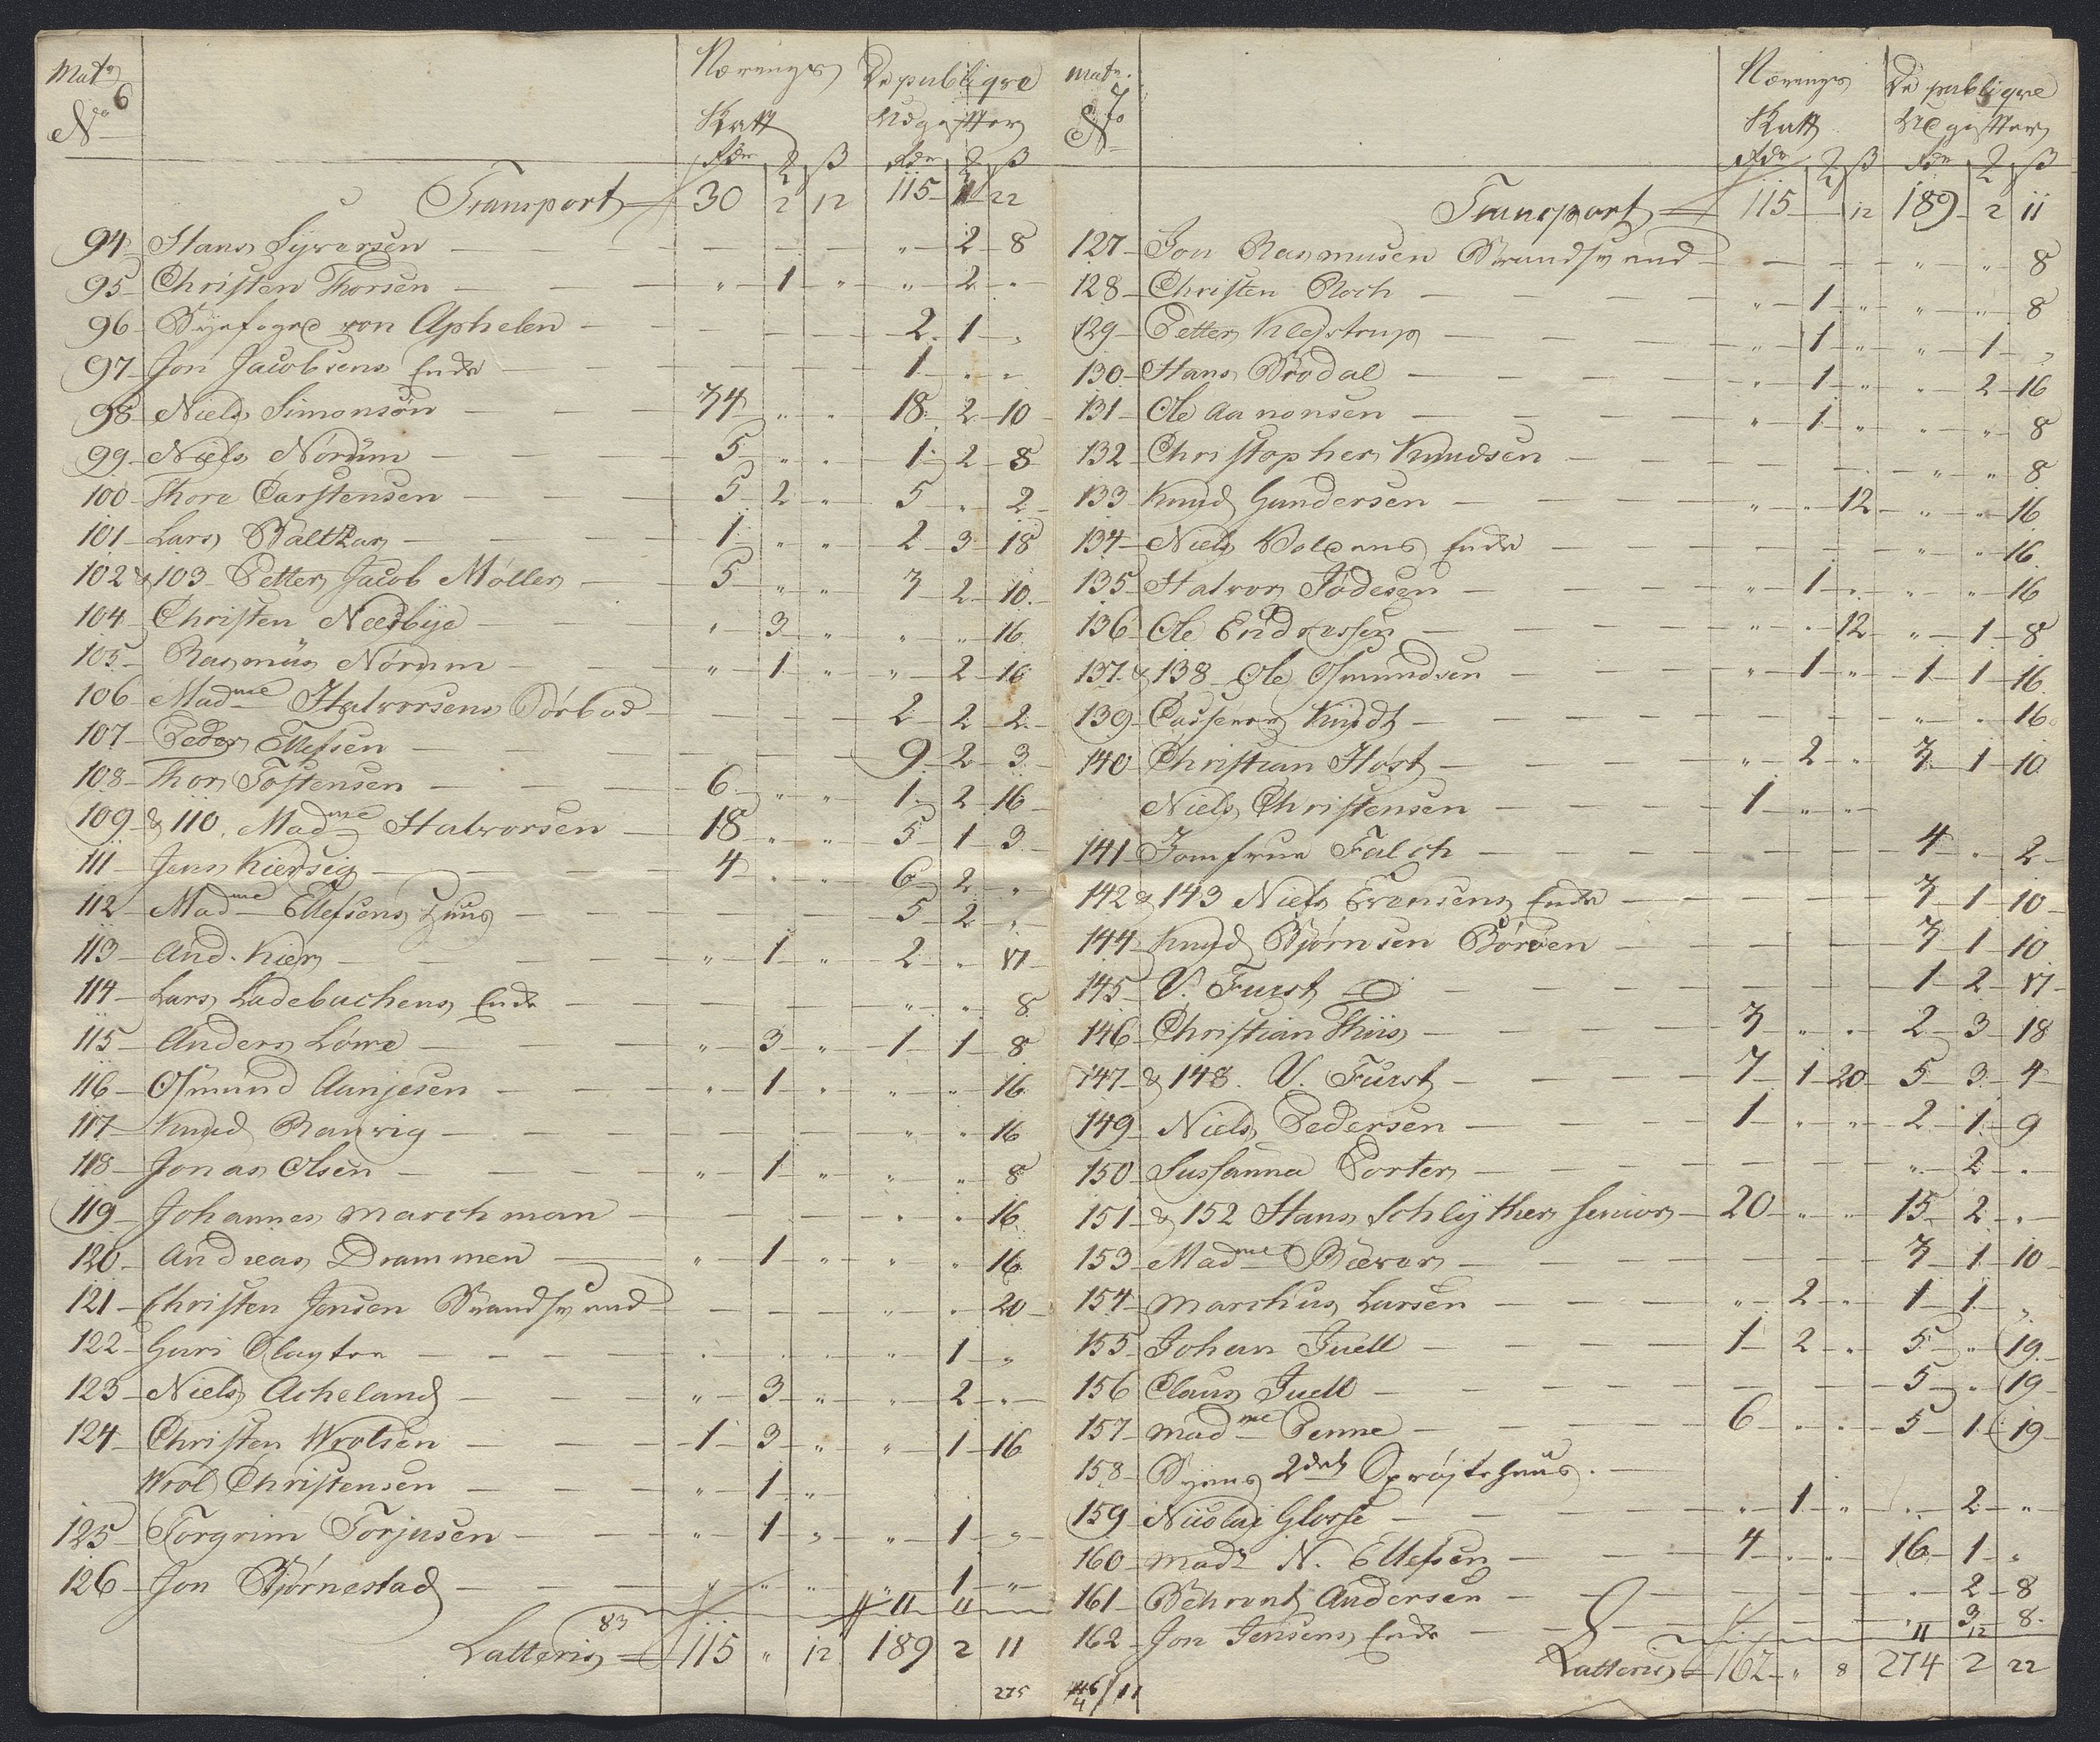 Matr
No 6
Nærings
Skatt
De publiqve
Udgifter
Rdr ß Rdr ß
Transport 30 2 12 115 1 22
94 Hans Sÿversen " 2 8
95 Christen Thorsen " 1 " " 2 "
96 Byefoged von Aphelen 2 1 "
97 Jon Jacobsens Enke 1 " "
98 Niels Simonsøn 34 " " 18 2 10
99 Niels Nórum 5 " " 1 2 8
100 Thore Carstensen 5 2 " 5 " 2
101 Lars Balthar 1 " " 2 3 18
102 & 103 Petter Jacob Møller 5 " " 3 2 10
104 Christen Neésbÿe " 3 " " " 16
105 Rasmus Nórum " 1 " " 2 16
106 Madme Halvorsens 2 2 2
107 Peder Ellefsen 9 2 3
108 Thor Tostensen 6 " " 1 2 16
109 & 110 Madme Halvorsen 18 " " 5 1 3
111 Jens Kiersig 4 " " 6 2 "
112 Madme Ellefsens Huus 5 2 "
113 And. Kier " 1 " 2 " 17
114 Lars Ladebachens Enke " " 8
115 Anders Lówe " 3 " 1 1 8
116 Osmund Aanjesen " 1 " " " 16
117 Knud Ranvig " " 16
118 Jonas Olsen " 1 " " " 8
119 Johannes Marchman " " 16
120 Andreas Drammen " 1 " " " 16
121 Christen Jensen Brandsvend " " 20
122 Guri " 1 "
123 Niels Acheland " 3 " " 2 "
124 Christen Wrolsen 1 3 " " 1 16
Wrol Christensen " 1 "
125 Torgrim Torjusen " 1 " " 1 "
126 Jon Bjørnestad " " " " 1 "
83 11 11
Latteris 115 " 12 189 2 11
275
Matr.
No 7
Nærings
Skatt
De publiqve
Udgifter
Rdr ß Rdr ß
Transport 115 12 189 2 11
127 Jon Rasmusen Brandsvend " " 8
128 Christen Roch " 1 " " " 8
129 Petter Klegstrup " 1 " " 1 "
130 Hans Brodal " 1 " " 2 16
131 Ole Aanonsen " 1 " " " 8
132 Christopher Knudsen " " 8
133 Knud Gundersen " " 12 " " 16
134 Niels Enke " " 16
135 Halvor Jódesen " 1 " " " 16
136 Ole " " 12 " 1 8
137 & 138 Ole Osmundsen " 1 " 1 1 16
139 Knudt " " 16
140 Christian Høst " 2 " 3 1 10
Niels Christensen 1 " "
141 Jomfrue Falch 4 " 2
142 & 143 Niels Evensens Enke 3 1 10
144 Knud Bjørnsen Bórøen 3 1 10
145 V. Furst 1 2 17
146 Christian Thiis 3 " " 2 3 18
147 & 148. V. Furst 7 1 20 5 3 4
149 Niels Pedersen 1 " " 2 1 9
150 Sussanna Porter " 2 "
151 & 152 Hans Schlÿther Senior 20 " " 15 2 "
153 Madme Bæver 3 1 10
154 Marchus Larsen " 2 " 1 1 "
155 Johan Juell 1 2 " 5 " 19
156 Claus Juell 5 " 19
157 Madme Penne 6 " " 5 1 19
158 Byens 2det Sprøjtehuus
159 Nicolai Glosse " 1 " " 2 "
160 Made N. Ellefsen 4 " " 16 1 "
161 Behrent Andersen " 2 8
162 Jon Jensens Enke " 3 8
11 12
Latteris 162 " 8 274 2 22